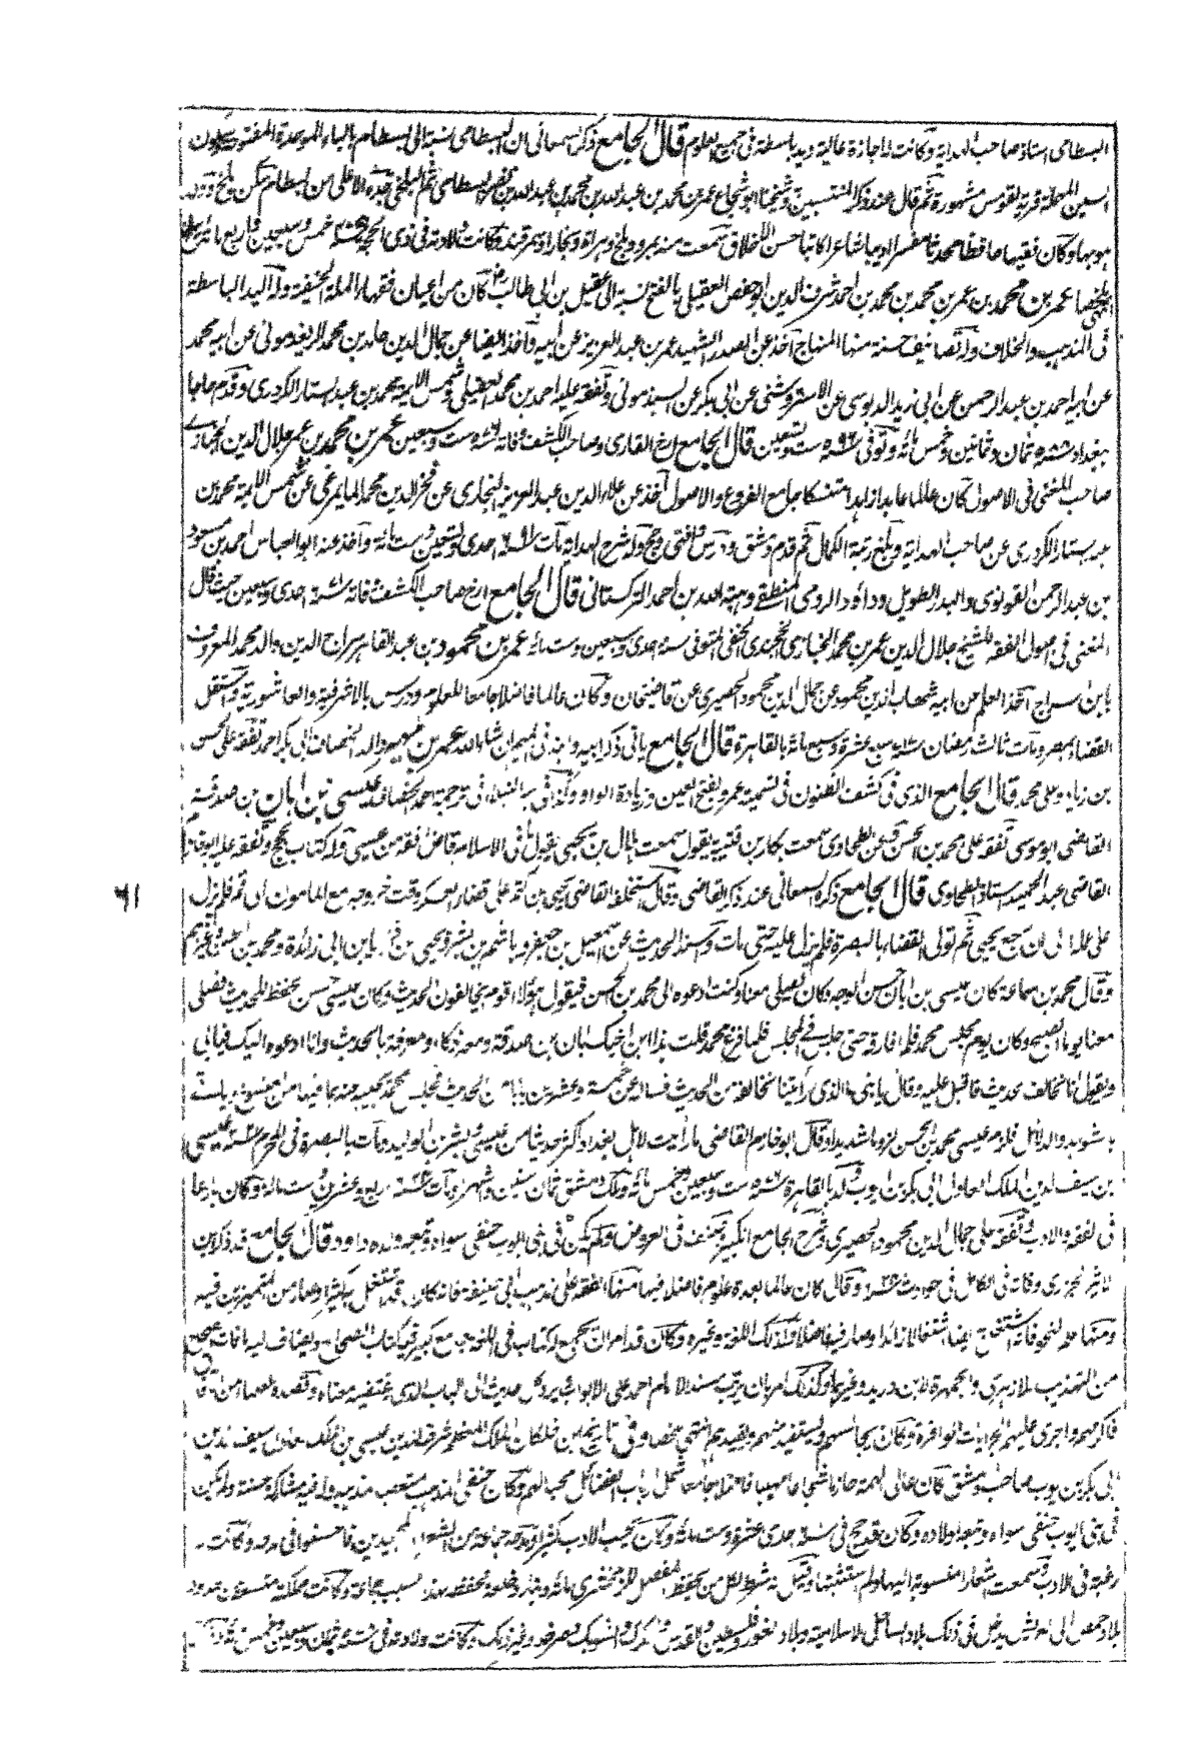 البسطامى استاذ صاحب الهداية وكانت له اجازة عالية ويد باسطة فى جميع العلوم قال الجامع ذكر السمعانى ان البسطامى نسبة الى بسطام بالباء الموحدة المفتوحة وسكون
السين المهملة قرية بقومس مشهورة ثم قال عند ذكر المنتسبين وشيخنا ابو شجاع عمر بن محمد بن عبد الله بن محمد بن عبد الله بن نصر البسطامى ثم البلخى جده الاعلى من بسطام سكن بلخ وولد
هو بها وكان فقيها حافظا محدثا مفسرا اديبا شاعرا كاتبا حسن الاخلاق سمعت منه بمرو وبلخ وهراة وبخارا وسمرقند وكانت ولادته فى ذى الحجة سنة خمس وسبعين واربع مائة ببلخ
عمر بن محمد بن عمر بن محمد بن محمد بن احمد شرف الدين ابو حفص العقيلى بالفتح نسبة الى عقيل بن ابى طالب كان من اعيان فقهاء الملة الحنيفة وله اليد الباسطة
فى المذهب والخلاف وله تصانيف حسنة منها المنهاج آخذ عن الصدر الشهيد عمر بن عبد العزيز عن ابيه وآخذ ايضا عن جمال الدين حامد بن محمد الريغدمونى عن ابيه محمد
عن ابيه احمد بن عبد الرحمن عن ابى زيد الدبوسى عن الاستروشنى عن ابى بكر عن السبذمونى وتفقه عليه احمد بن محمد العقيلى وشمس الايمة محمد بن عبد الستار الكردرى وقدم حاجا
ببغداد سنة ٥٨٨ ثمان وثمانين وخمس مائة وتوفى سنة ست وتسعين قال الجامع ارخ القارى وصاحب الكشف وفاته سنة ست وسبعين عمر بن محمد بن عمر جلال الدين الخبازى
صاحب المغنى فى الاصول كان عالما عابدا زاهدا متنسكا جامع الفروع والاصول آخذ عن علاء الدين عبد العزيز البخارى عن فخر الدين محمد المايمرغى عن شمس الايمة محمد بن
عبد ستار الكردرى عن صاحب الهداية وبلغ رتبة الكمال ثم قدم دمشق ودرس وافتى وحج وله شرح الهداية مات سنة ٦٩١ احدى وتسعين وست مائة وآخذ عنه ابو العباس احمد بن مسعود
بن عبد الرحمن القونوى والبدر الطويل وداؤد الرومى المنطقى وهبة الله بن احمد التركستانى قال الجامع ارخ صاحب الكشف وفاته سنة احدى وسبعين حيث قال
المغنى فى اصول الفقه للشيخ جلال الدين عمر بن محمد الخبازى الخجندى الحنفى المتوفى سنة احدى وسبعين وست مائة عمر بن محمود بن عبد القاهر سراج الدين والد محمد المعروف
بابن سراج آخذ العلم من ابيه شهاب الدين محمود عن جمال الدين محمود الحصيرى عن قاضيخان وكان عالما فاضلا جامعا للعلوم ودرس بالاشرفية والعاشورية واستقل
القضاء بمصر ومات ثالث رمضان سنة سبع عشرة وسبع مائة بالقاهرة قال الجامع ياتى ذكر ابيه وابنه فى الميم ان شاء الله عمر بن مهير والد الخصاف ابى بكر احمد تفقه على الحسن
بن زياد وعلى محمد قال الجامع الذى فى كشف الظنون فى تسمية عمرو بفتح العين وزيادة الواو وكذا فى سير النبلاء فى ترجمة احمد الخصاف عيسى بن ابان بن صدقة
القاضى ابو موسى تفقه على محمد بن الحسن عن الطحاوى سمعت بكار بن قتيبة يقول سمعت هلال بن يحيى يقول ما فى الاسلام قاض افقه من عيسى وله كتاب الحج وتفقه عليه ابو خازم
القاضى عبد الحميد استاذ الطحاوى قال الجامع ذكره السمعانى عند ذكر القاضى وقال استخلفه القاضى يحيى بن اكثم على قضاء العسكر وقت خروجه مع المامون الى فم فلم يزل
على عمله الى ان رجع يحيى ثم تولى القضاء بالبصرة فلم يزل عليه حتى مات واسند الحديث عن اسمعيل بن جعفر وهاشم بن بشر ويحيى بن ابى زائدة ومحمد بن الحسن وغيرهم
وقال محمد بن سماعة كان عيسى بن ابان حسن الوجه وكان يصلى معنا وكنت ادعوه الى محمد بن الحسن فيقول هؤلاء قوم يخالفون الحديث وكان عيسى حسن الحفظ للحديث فصلى
معنا يوما الصبح وكان يوم مجلس محمد فلم افارقه حتى جلس فى المجلس فلما فرغ محمد قلت هذا ابن اخيك ابان بن صدقة ومعه ذكاء ومعرفة بالحديث وانا ادعوه اليك فيابى
ويقول انا نخالف الحديث فاقبل عليه وقال يا بنى ما الذى رأيتنا نخالفه من الحديث فساله عن خمسة وعشرين بابا من الحديث فجعل محمد يجيبه عنها بما فيها من المنسوخ وياتى
بالشواهد والدلائل فلزم عيسى محمد بن الحسن لزوما شديدا وقال ابو خازم القاضى ما رأيت لاهل بغداد اكثر حديثا من عيسى وبشر بن الوليد ومات بالبصرة فى المحرم سنة عيسى
بن سيف الدين الملك العادل ابى بكر بن ايوب ولد بالقاهرة سنة ست وسبعين وخمس مائة وملك دمشق ثمان سنين واشهر ومات سنة اربع وعشرين وست مائة وكان بارعا
فى الفقه والادب وتفقه على جمال الدين محمود الحصيرى وشرح الجامع الكبير وصنف فى العروض ولم يكن فى بنى ايوب حنفى سواه وتبعه ولده داود قال الجامع قد ذكر ابن
الاثير الجزرى وفاته فى الكامل فى حوادث سنة وقال كان عالما بعدة علوم فاضلا فيها منها الفقه على مذهب ابى حنيفة فانه كان قد اشتغل به كثيرا وصار من المتميزين فيه
ومنها علم النحو فانه اشتغل به ايضا اشتغالا زائدا وصار فيه فاضلا وكذلك اللغة وغيره وكان قد امر ان يجمع له كتاب فى اللغة جامع كبير فيه كتاب الصحاح ويضاف اليه ما فات الصحيح
من التهذيب للازهرى والجمهرة لابن دريد وغيرهما وكذلك امر بان يرتب مسند الامام احمد على الابواب ويرد كل حديث الى الباب الذى يقتضيه معناه وقصده العلماء من
فاكرمهم واجرى عليهم الجرايات الوافرة وكان يجالسهم ويستفيد منهم ويفيدهم انتهى ملخصا وفى تاريخ ابن خلكان الملك المعظم شرف الدين عيسى بن الملك العادل سيف الدين
ابى بكر بن ايوب صاحب دمشق كان عالى الهمة حازما شجاعا مهيبا فاضلا جامعا شمل ارباب الفضائل محبا لهم وكان حنفى المذهب متعصب لمذهبه وله فيه مشاركة حسنة ولم يكن
فى بنى ايوب حنفى سواه وتبعه اولاده وكان قد حج فى سنة احدى عشرة وست مائة وكان يحب الادب كثيرا ومدحه جماعة من الشعراء المجيدين فاحسنوا فى مدحه وكانت
رغبة فى الادب وسمعت اشعارا منسوبة اليه ولم استثبتها وقيل انه شرط لكل من يحفظ المفصل للزمخشرى مائة دينار وخلعة فحفظه لهذا السبب جماعة وكانت مملكته متسعة من حدود
بلاد حمص الى العريش يدخل فى ذلك بلاد الساحل الاسلامية وبلاد الغور وفلسطين والقدس والكرك والشوبك وصرخد وغير ذلك وكانت ولادته فى سنة ثمان وسبعين وخمس مائة
٦١